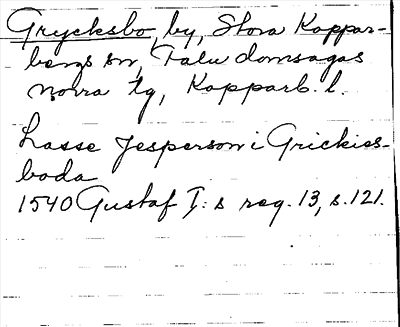 Grycksbo, by, Stora Koppar-
bergs sn, Falu domsagas
norra tg, Kopparb. l.
Lasse Jesperson i Grickies-
boda
1540 Gustaf I: s reg. 13, s. 121.